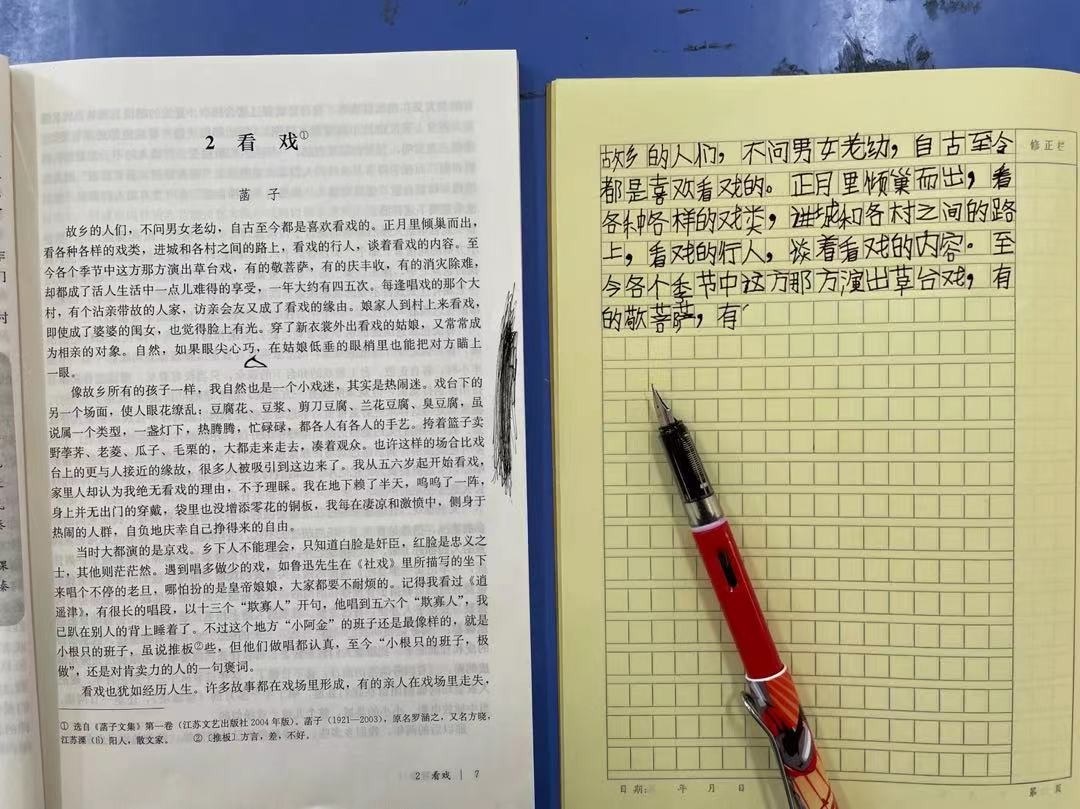 2 看戏①
菡子
故乡的人们，不问男女老幼，自古至今都是喜欢看戏的。正月里倾巢而出，
看各种各样的戏类，进城和各村之间的路上，看戏的行人，谈着看戏的内容。至
今各个季节中这方那方演出草台戏，有的敬菩萨，有的庆丰收，有的消灾除难，
却都成了活人生活中一点儿难得的享受，一年大约有四五次。每逢唱戏的那个大
村，有个沾亲带故的人家，访亲会友又成了看戏的缘由。娘家人到村上来看戏，
即使成了婆婆的闺女，也觉得脸上有光。穿了新衣裳外出看戏的姑娘，又常常成
为相亲的对象。自然，如果眼尖心巧，在姑娘低垂的眼梢里也能把对方瞄上
一眼。
像故乡所有的孩子一样，我自然也是一个小戏迷，其实是热闹迷。戏台下的
另一个场面，使人眼花缭乱：豆腐花、豆浆、剪刀豆腐、兰花豆腐、臭豆腐，虽
说属一个类型，一盏灯下，热腾腾，忙碌碌，都各人有各人的手艺。挎着篮子卖
野荸荠、老菱、瓜子、毛栗的，大都走来走去，凑着观众。也许这样的场合比戏
台上的更与人接近的缘故，很多人被吸引到这边来了。我从五六岁起开始看戏，
家里人却认为我绝无看戏的理由，不予理睬。我在地下赖了半天，呜呜了一阵，
身上并无出门的穿戴，袋里也没增添零花的铜板，我每在凄凉和激愤中，侧身于
热闹的人群，自负地庆幸自己挣得来的自由。
当时大都演的是京戏。乡下人不能理会，只知道白脸是奸臣，红脸是忠义之
士，其他则茫茫然。遇到唱多做少的戏，如鲁迅先生在《社戏》里所描写的坐下
来唱个不停的老旦，哪怕扮的是皇帝娘娘，大家都要不耐烦的。记得我看过《逍
遥津》，有很长的唱段，以十三个“欺寡人”开句，他唱到五六个“欺寡人”，我
已趴在别人的背上睡着了。不过这个地方“小阿金”的班子还是最像样的，就是
小根只的班子，虽说推板②些，但他们做唱都认真，至今“小根只的班子，极
做”，还是对肯卖力的人的一句褒词。
看戏也犹如经历人生。许多故事都在戏场里形成，有的亲人在戏场里走失，
① 选自《菡子文集》第一卷（江苏文艺出版社2004年版）。菡子（1921—2003），原名罗涵之，又名方晓，
江苏溧（lì）阳人，散文家。 ②〔推板〕方言，差，不好。
2 看戏 | 7
修正栏
故乡的人们，不问男女老幼，自古至今
都是喜欢看戏的。正月里倾巢而出，看
各种各样的戏类，进城和各村之间的路
上，看戏的行人，谈着看戏的内容。至
今各个季节中这方那方演出草台戏，有
的敬菩萨，有
日期： 年 月 日 第 页